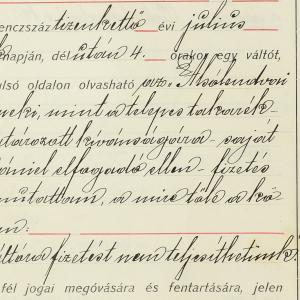 lenczszáz tizenkettő évi július
napján, dél után 4. órakor egy váltót,
ulsó oldalon olvasható az. Alsólendvai
neki, mint a telepes takarék-
tározott kívánságára - saját
dániel elfogadó ellen - fizetés
mutattam, a mire tőlök a kö-
en:
áltóra fizetést nem teljesíthetünk.
fél jogai megóvására és fentartására, jelen